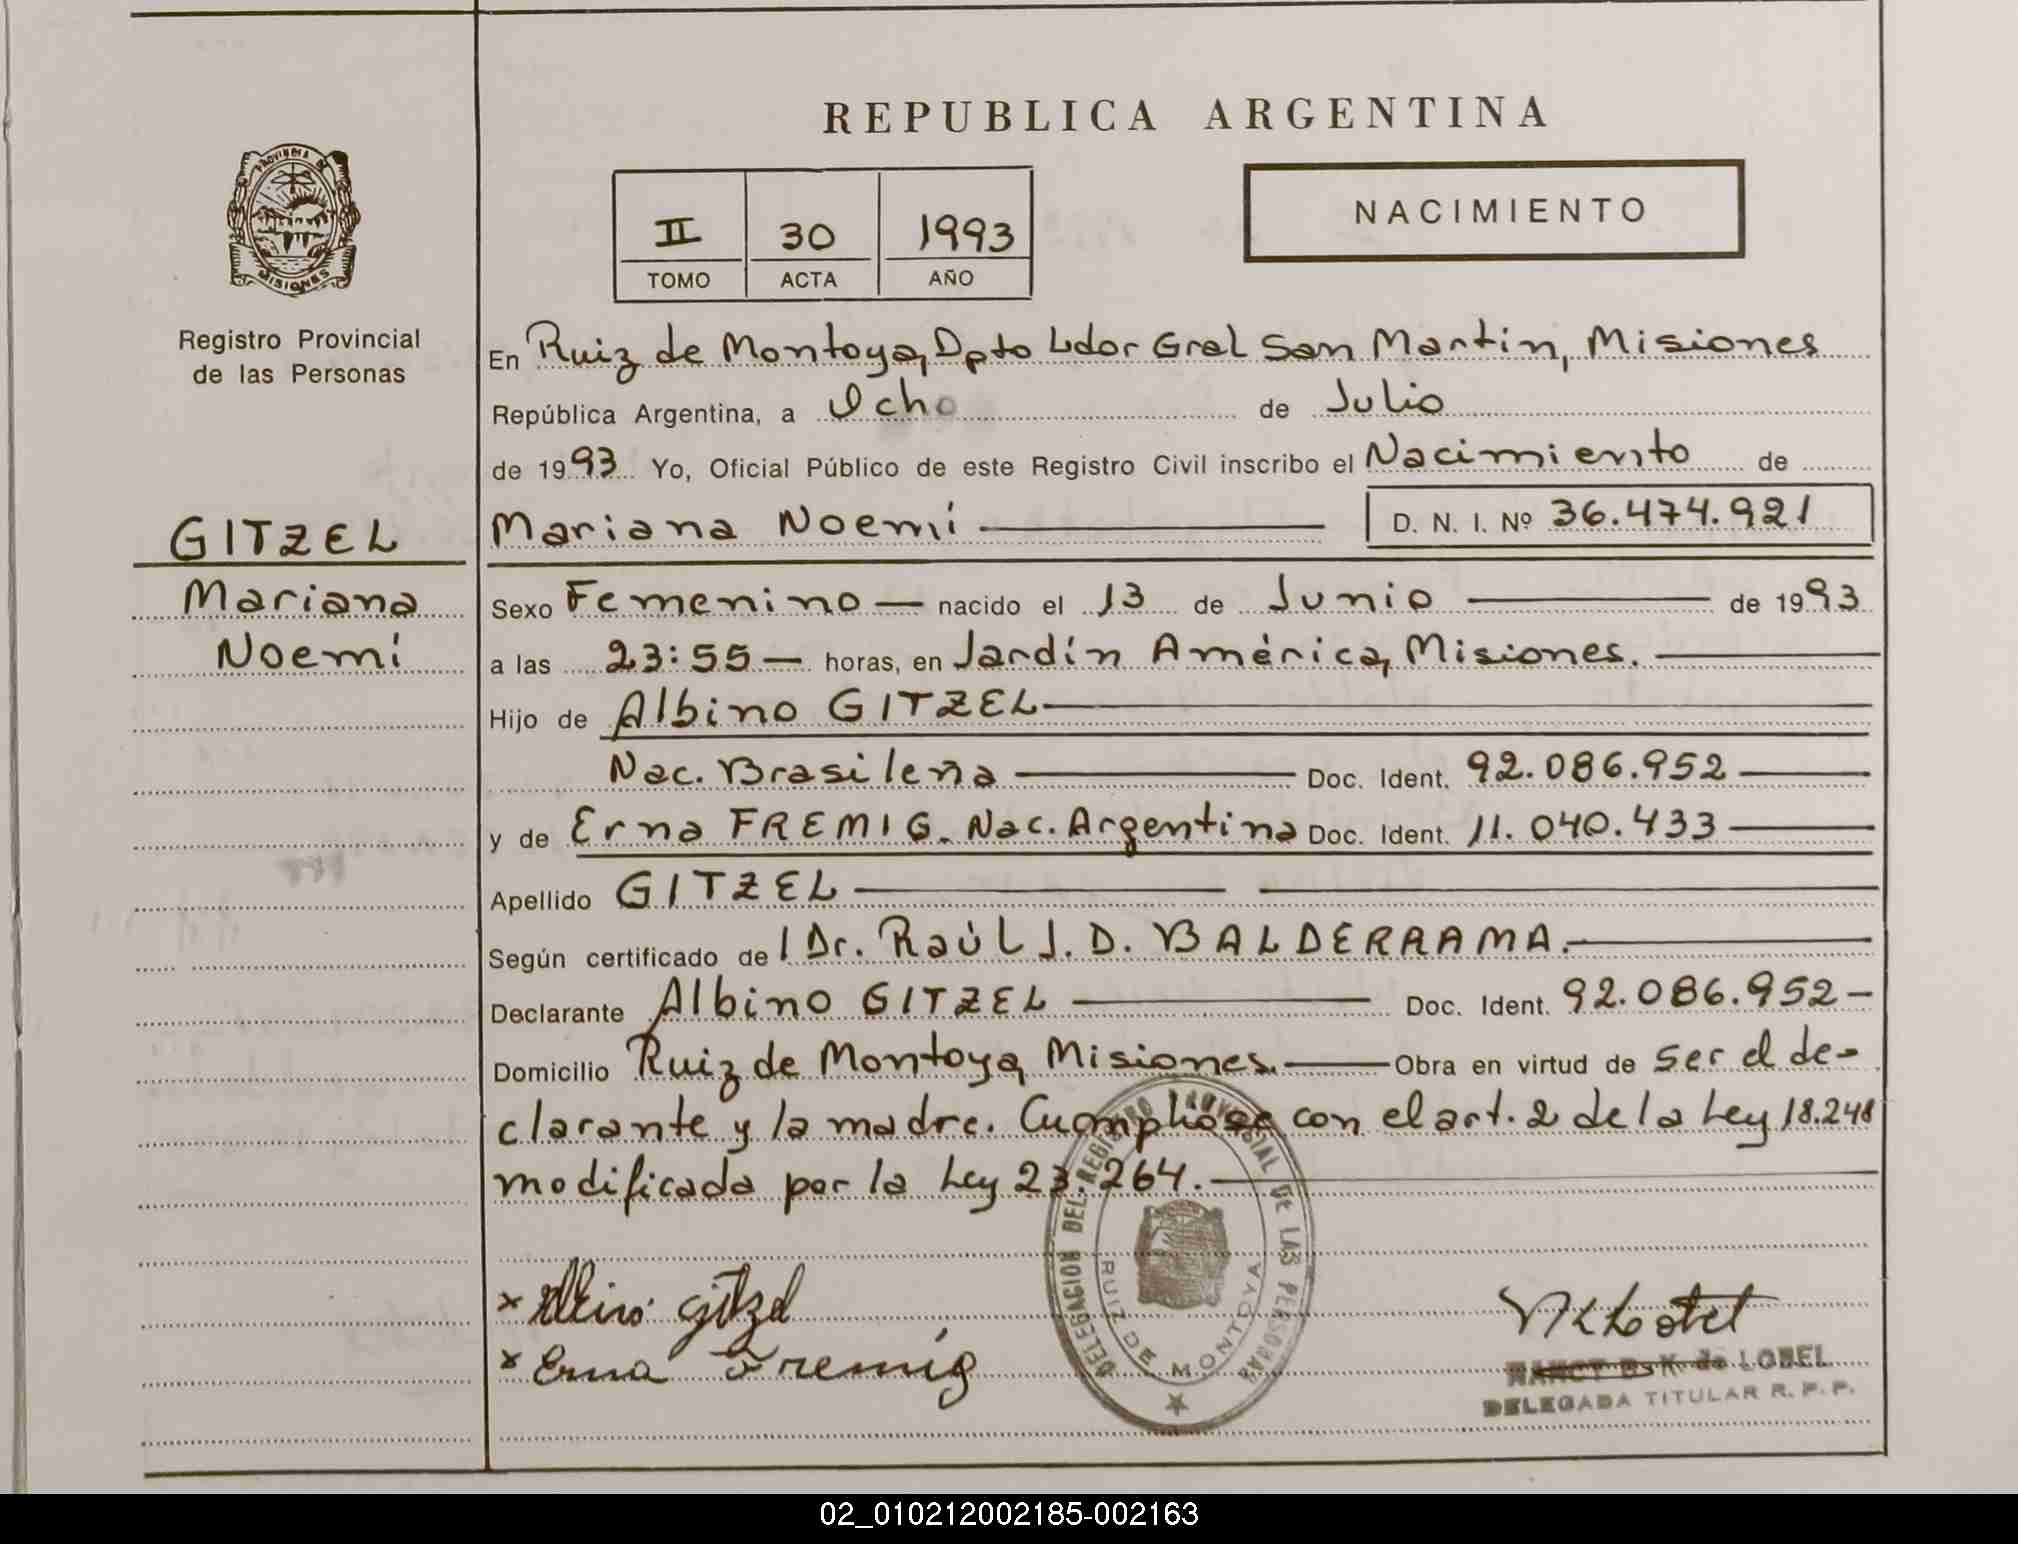 REPUBLICA ARGENTINA
PROVINCIA DE
MISIONES
II 30 1993
TOMO ACTA AÑO
NACIMIENTO
Registro Provincial
de las Personas
GITZEL
Mariana
Noemí
En Ruiz de Montoya, Dpto Ldor Gral San Martín, Misiones
República Argentina, a Ocho de Julio
de 1993 Yo, Oficial Público de este Registro Civil inscribo el Nacimiento de
Mariana Noemí D. N. I. Nº 36.474.921
Sexo Femenino nacido el 13 de Junio de 1993
a las 23:55 horas, en Jardín América, Misiones.
Hijo de Albino GITZEL
Nac. Brasileña Doc. Ident. 92.086.952
y de Erna FREMIG. Nac. Argentina Doc. Ident. 11.040.433
Apellido GITZEL
Según certificado de l Dr. Raúl J. D. BALDERRAMA.
Declarante Albino GITZEL Doc. Ident. 92.086.952
Domicilio Ruiz de Montoya, Misiones. Obra en virtud de ser el de-
clarante y la madre. Cumpliose con el art. 2 de la Ley 18.248
modificada por la Ley 23.264.
DELEGACION DEL REGISTRO PROVINCIAL DE LAS PERSONAS
RUIZ DE MONTOYA
x Gitzel
x Erna Fremig
NANCY B. K. de LOBEL
DELEGADA TITULAR R. P. P.
02_010212002185-002163